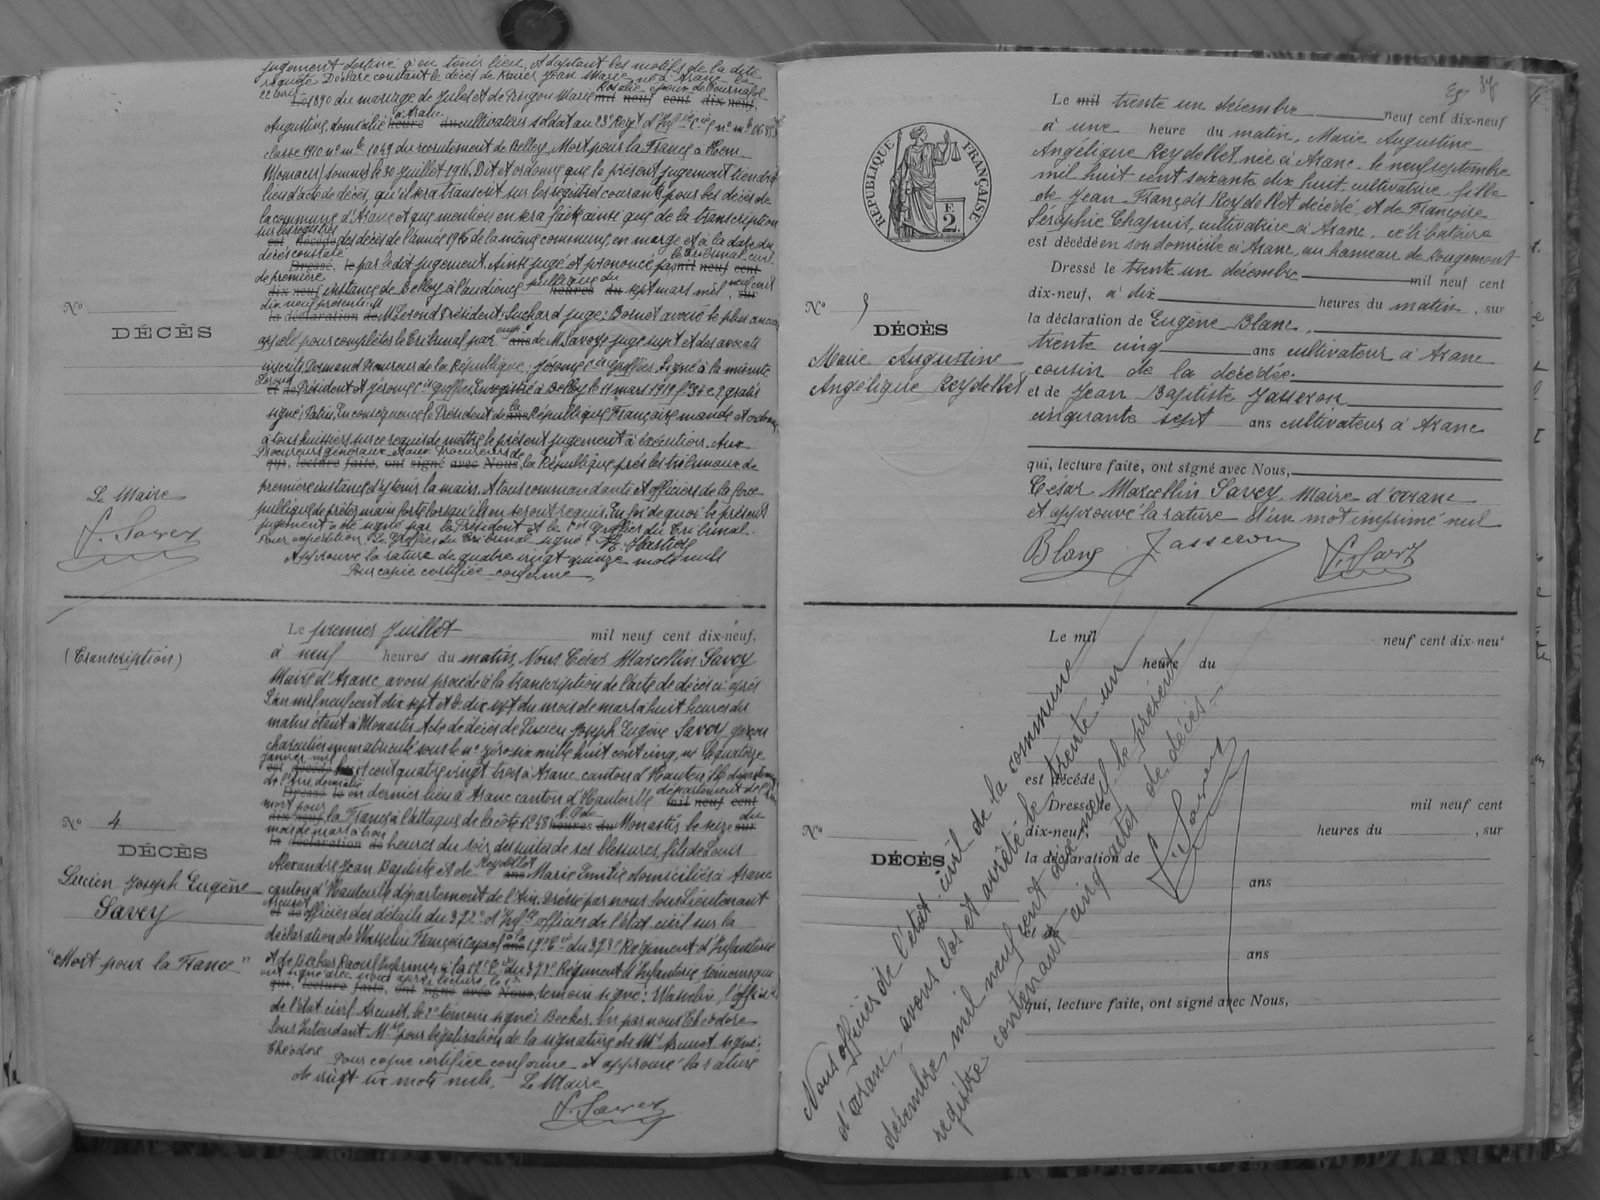 jugement destiné à en tenir lieu. Adoptant les motifs de la dite
requête Déclare constant le décès de Ravier Jean Marie né à Aranc le
1890 du mariage de Jules et de Drogou Marie Rosalie époux de Tournafol mil neuf cent dix neuf,
Augustine, domicilié à Aranc heure du cultivateur soldat au 23e Regt d'Infie
classe 1910 n° mle 1049 du recrutement de Belley, Mort pour la France à Hem
Monacu, somme le 30 juillet 1916. Dit et ordonne que le présent jugement tiendra
lieu d'acte de décès, qu'il sera transcrit sur les registres courants pour les décès de
la commune d'Aranc et que mention en sera faite ainsi que de la transcription
sur les registres
est décédé des décès de l'année 1916 de la même commune en marge et à la date du
décès constaté
Dressé le par le dit jugement. Ainsi jugé et prononcé par le tribunal civil mil neuf cent
de première
dix neuf instance de Belley à l'audience publique du heures du sept mars mil neuf cent sur
dix neuf présents M
la déclaration de M Berond Président; Luchard juge; Bornet avoué le plus ancien
appelé pour compléter le tribunal par ans de M. Savoye juge supt et des avocats
inscrits Dormand Procureur de la République; Jérome Greffier. Signé à la minute
Berond
et de Président et Jérome Greffier. Enregistré à Belley le 11 mars 1919 f° 30 c 2 gratis
signé; Patin. En conséquence le Président de la ans République Française mande et ordonne
à tous huissiers sur ce requis de mettre le présent jugement à exécution. Aux
Procureurs généraux et aux Procureurs de
qui, lecture faite, ont signé avec Nous, la République près les tribunaux de
première instance d'y tenir la main. A tous commandants et officiers de la force
publique de prêter main forte lorsqu'ils en seront requis. En foi de quoi le présent
jugement a été signé par le Président et le Greffier du Tribunal.
Pour expédition Le Greffier du Tribunal signé
Approuvé la rature de quatre vingt quinze mots nuls
Pour copie certifiée conforme
N°
DÉCÈS
Le Maire
C. Savey
(Transcription)
N° 4
DÉCÈS
Lucien Joseph Eugène
Savey
"Mort pour la France"
Le premier Juillet mil neuf cent dix-neuf,
à neuf heures du matin, Nous César Marcellin Savey
Maire d'Aranc avons procédé à la transcription de l'acte de décès ci-après
L'an mil neuf cent dix sept et le dix sept du mois de mars à huit heures du
matin étant à Monastir Acte de décès de Lucien Joseph Eugène Savey garçon
charcutier immatriculé sous le n° zéro six mille huit cent cinq, né le quatorze
janvier mil
est décédé huit cent quatre vingt trois à Aranc canton d'Hauteville département
de l'Ain domicilié
Dressé le en dernier lieu à Aranc canton d'Hauteville département de l'Ain mil neuf cent
mort pour
dix-neuf la France à l'attaque de la côte 1248 N.O de heures du Monastir le seize du sur
mois de mars à dix
la déclaration de heures du soir des suites de ses blessures, fils de Louis
Alexandre Jean Baptiste et de Reydellet ans Marie Emilie domiciliés à Aranc
canton d'Hauteville département de l'Ain. Dressé par nous Sous Lieutenant
Arcuset
et de officier des détails du 372e d'Infie officier de l'état civil sur la
déclaration de Wasselin François caporal à la ans 19e Cie du 373e Régiment d'Infanterie
et de Becker Raoul infirmier à la 19e Cie du 373e Régiment d'Infanterie, témoins qui
ont signé avec nous après lecture, le 1er
qui, lecture faite, ont signé avec Nous, témoin signé: Wasselin, l'officier
de l'état civil Arcuset, le 2e témoin signé: Becker. Vu par nous Théodore
Sous Intendant Mre pour légalisation de la signature de Mr Arcuset signé:
Théodore
Pour copie certifiée conforme et approuvé la rature
de vingt six mots nuls. Le Maire
C. Savey
Le mil trente un décembre neuf cent dix-neuf
à une heure du matin, Marie Augustine
Angélique Reydellet née à Aranc le neuf septembre
mil huit cent soixante dix huit, cultivatrice, fille
de Jean François Reydellet décédé, et de Françoise
Séraphie Chapuis, cultivatrice à Aranc, célibataire
est décédée en son domicile à Aranc, au hameau de Rougemont
Dressé le trente un décembre mil neuf cent
dix-neuf, à dix heures du matin, sur
la déclaration de Eugène Blanc,
trente cinq ans cultivateur à Aranc
cousin de la décédée.
et de Jean Baptiste Jasseron
cinquante sept ans cultivateur à Aranc
qui, lecture faite, ont signé avec Nous,
César Marcellin Savey Maire d'Aranc
et approuvé la rature d'un mot imprimé nul
Blanc Jasseron C. Savey
RÉPUBLIQUE FRANÇAISE
2
N° 5
DÉCÈS
Marie Augustine
Angélique Reydellet
Le mil neuf cent dix-neuf
heure du
est décédé
Dressé le mil neuf cent
dix-neuf heures du , sur
la déclaration de
ans
et de
ans
qui, lecture faite, ont signé avec Nous,
N°
DÉCÈS
Nous officier de l'état civil de la commune
d'Aranc, avons clos et arrêté le trente un
décembre mil neuf cent dix-neuf le présent
registre contenant cinq actes de décès
C. Savey